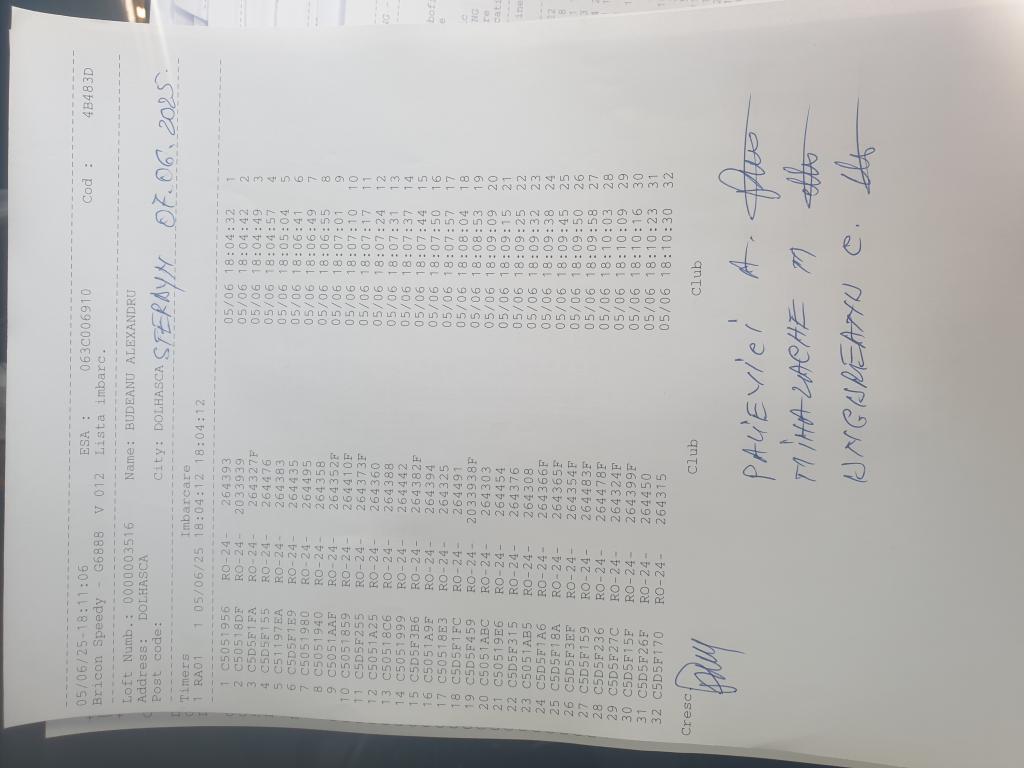 05/06/25-18:11:06 ESA : 063C006910 Cod : 4B483D
Bricon Speedy - G6888 V 012 Lista imbarc.
Loft Numb.: 0000003516 Name: BUDEANU ALEXANDRU
Address: DOLHASCA City: DOLHASCA 07.06.2025.
Post code:
Timers Imbarcare
1 RA01 1 05/06/25 18:04:12 18:04:12
1 C5051956 RO-24- 264393 05/06 18:04:32 1
2 C50518DF RO-24- 2033939 05/06 18:04:42 2
3 C5D5F1FA RO-24- 264327F 05/06 18:04:49 3
4 C5D5F155 RO-24- 264476 05/06 18:04:57 4
5 C51197EA RO-24- 264383 05/06 18:05:04 5
6 C5D5F1E9 RO-24- 264435 05/06 18:06:41 6
7 C5051980 RO-24- 264495 05/06 18:06:49 7
8 C5051940 RO-24- 264358 05/06 18:06:55 8
9 C5051AAF RO-24- 264352F 05/06 18:07:01 9
10 C5051859 RO-24- 264410F 05/06 18:07:10 10
11 C5D5F255 RO-24- 264373F 05/06 18:07:17 11
12 C5051A25 RO-24- 264360 05/06 18:07:24 12
13 C50518C6 RO-24- 264388 05/06 18:07:31 13
14 C5051999 RO-24- 264442 05/06 18:07:37 14
15 C5D5F3B6 RO-24- 264382F 05/06 18:07:44 15
16 C5051A9F RO-24- 264394 05/06 18:07:50 16
17 C50518E3 RO-24- 264325 05/06 18:07:57 17
18 C5D5F1FC RO-24- 264491 05/06 18:08:04 18
19 C5D5F459 RO-24- 2033938F 05/06 18:08:53 19
20 C5051ABC RO-24- 264303 05/06 18:09:09 20
21 C50519E6 RO-24- 264454 05/06 18:09:15 21
22 C5D5F315 RO-24- 264376 05/06 18:09:25 22
23 C5051AB5 RO-24- 264308 05/06 18:09:32 23
24 C5D5F1A6 RO-24- 264366F 05/06 18:09:38 24
25 C5D5F18A RO-24- 264365F 05/06 18:09:45 25
26 C5D5F3EF RO-24- 264354F 05/06 18:09:50 26
27 C5D5F159 RO-24- 264483F 05/06 18:09:58 27
28 C5D5F236 RO-24- 264478F 05/06 18:10:03 28
29 C5D5F27C RO-24- 264324F 05/06 18:10:09 29
30 C5D5F15F RO-24- 264399F 05/06 18:10:16 30
31 C5D5F26F RO-24- 264450 05/06 18:10:23 31
32 C5D5F170 RO-24- 264315 05/06 18:10:30 32
Cresc Club Club
A.
MIHALACHE M
C.